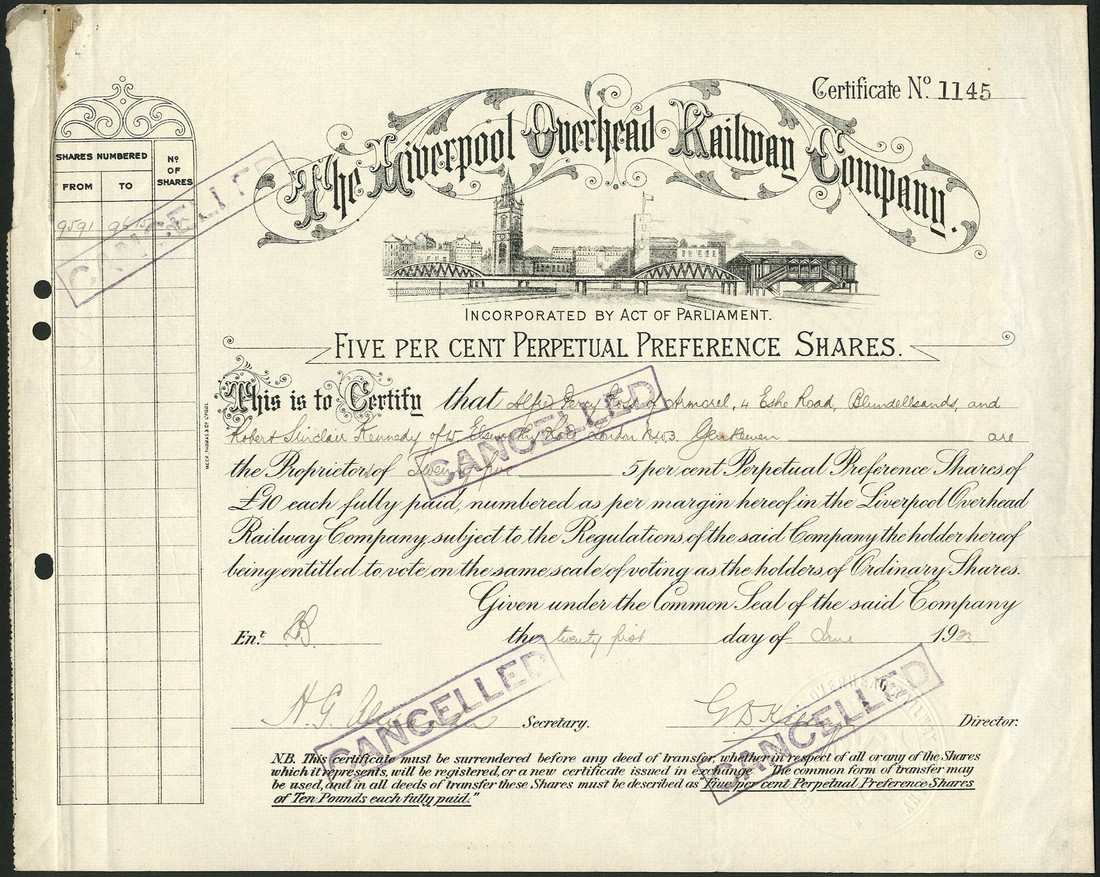 Certificate No. 1145
The Liverpool Overhead Railway Company.
INCORPORATED BY ACT OF PARLIAMENT.
FIVE PER CENT PERPETUAL PREFERENCE SHARES.
SHARES NUMBERED
No OF SHARES
FROM TO
9591
CANCELLED
This is to Certify that of Armorel, 4 Eshe Road, Blundellsands, and
Robert Sinclair Kennedy of London N.W.3 Gentlemen are
CANCELLED
the Proprietors of 5 per cent Perpetual Preference Shares of
£10 each fully paid, numbered as per margin hereof in the Liverpool Overhead
Railway Company, subject to the Regulations of the said Company the holder hereof
being entitled to vote on the same scale of voting as the holders of Ordinary Shares.
Given under the Common Seal of the said Company
Ent. the twenty first day of June 1923
H.G. Secretary.
CANCELLED
G B Director.
CANCELLED
N.B. This certificate must be surrendered before any deed of transfer, whether in respect of all or any of the Shares
which it represents, will be registered, or a new certificate issued in exchange. The common form of transfer may
be used, and in all deeds of transfer these Shares must be described as "Five per cent Perpetual Preference Shares
of Ten Pounds each fully paid."